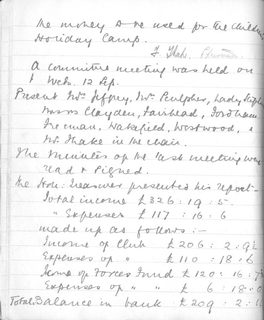 The money to be used for the Children's
Holiday Camp.
A committee meeting was held on
Wed. 12 Sep.
Present Mrs Jeffrey, Mrs Lady
Misses Clayden, Fairhead, Fordham
Freeman, Wakefield, Westwood, &
Mr Thake in the chair.
The Minutes of the last meeting was
read & signed.
The Hon: Treasurer presented his report:-
Total income £326 : 19 : 5.
" Expenses £117 : 16 : 6
made up as follows :-
Income of Club £206 : 2 : 9½
Expenses of " £110 : 18 : 6
Income of Forces Fund £120 : 16 : 7
Expenses of " " £ 6 : 18 : 0
Total Balance in bank £209 : 2 :